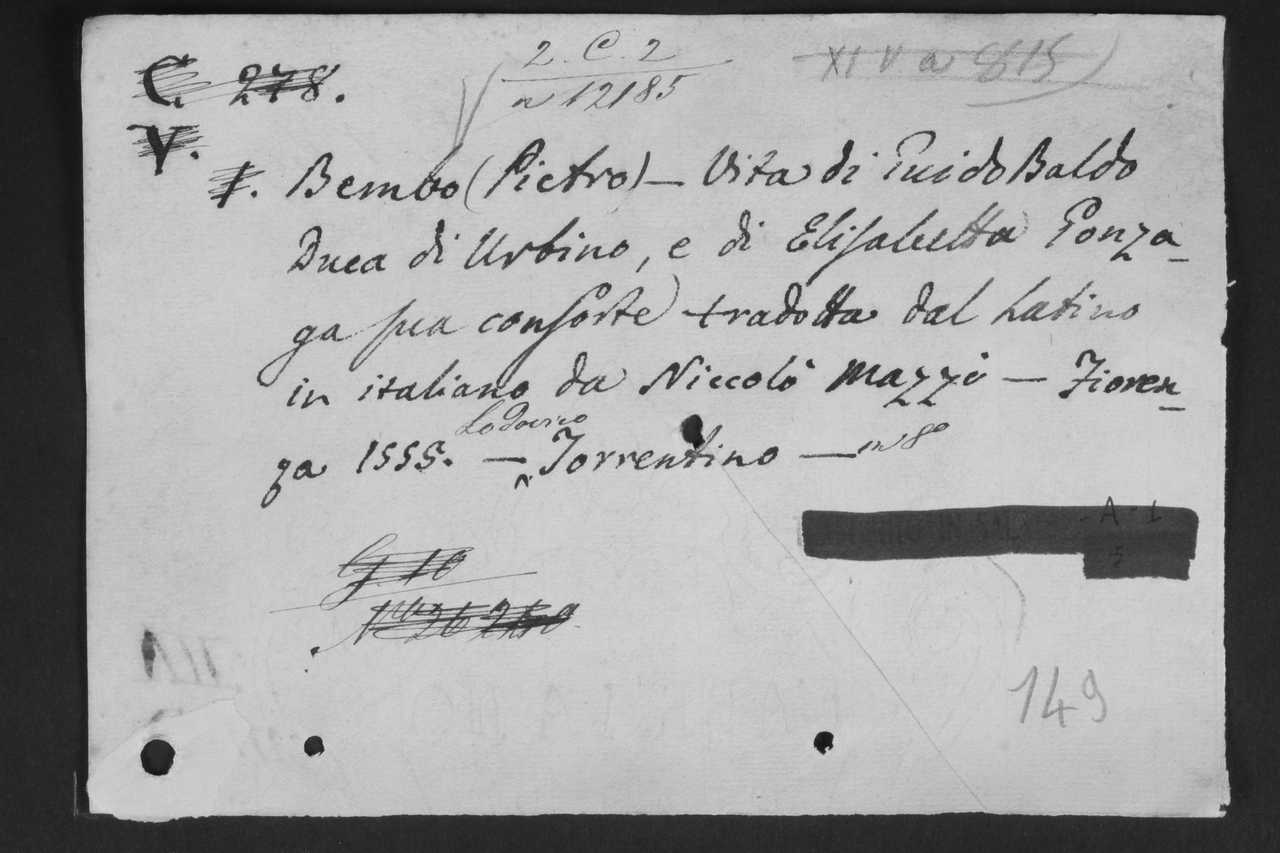 C. 278.
2. C. 2
n 12185
XIV a 815
V.
I. Bembo (Pietro) — Vita di Guido Baldo
Duca di Urbino, e di Elisabetta Gonza-
ga sua consorte tradotta dal Latino
in italiano da Niccolò Mazzi — Fioren-
Lodovico
za 1555. — Torrentino — in 8°
A. 1
5
G 10
149